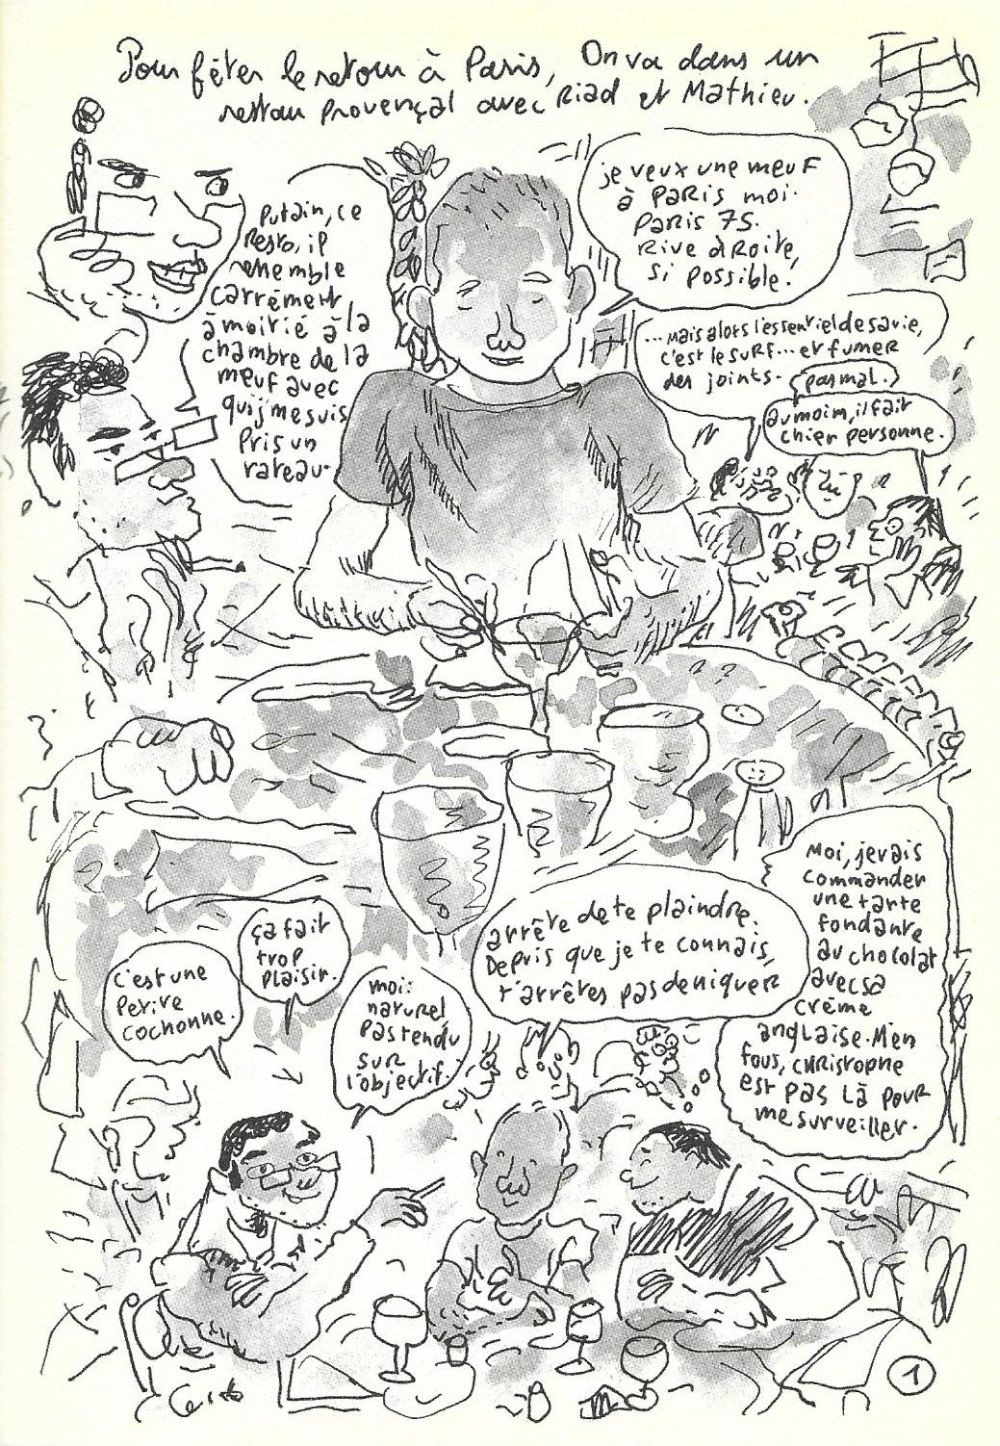 Pour fêter le retour à Paris, On va dans un
restau provençal avec Riad et Mathieu.
Putain, ce
resto, il
ressemble
carrément
à moitié à la
chambre de la
meuf avec
qui j'me suis
Pris un
rateau.
je veux une meuf
à Paris moi.
Paris 75.
Rive droite,
si possible.
...Mais alors l'essentiel de sa vie,
c'est le surf... et fumer
des joints.
pas mal.
au moins, il fait
chier personne.
Moi, je vais
commander
une tarte
fondante
au chocolat
avec sa
crème
anglaise. M'en
fous, christophe
est pas là pour
me surveiller.
arrête de te plaindre.
Depuis que je te connais,
t'arrêtes pas de niquer
ça fait
trop
plaisir.
c'est une
petite
cochonne.
moi:
naturel
pas tendu
sur
l'objectif.
1